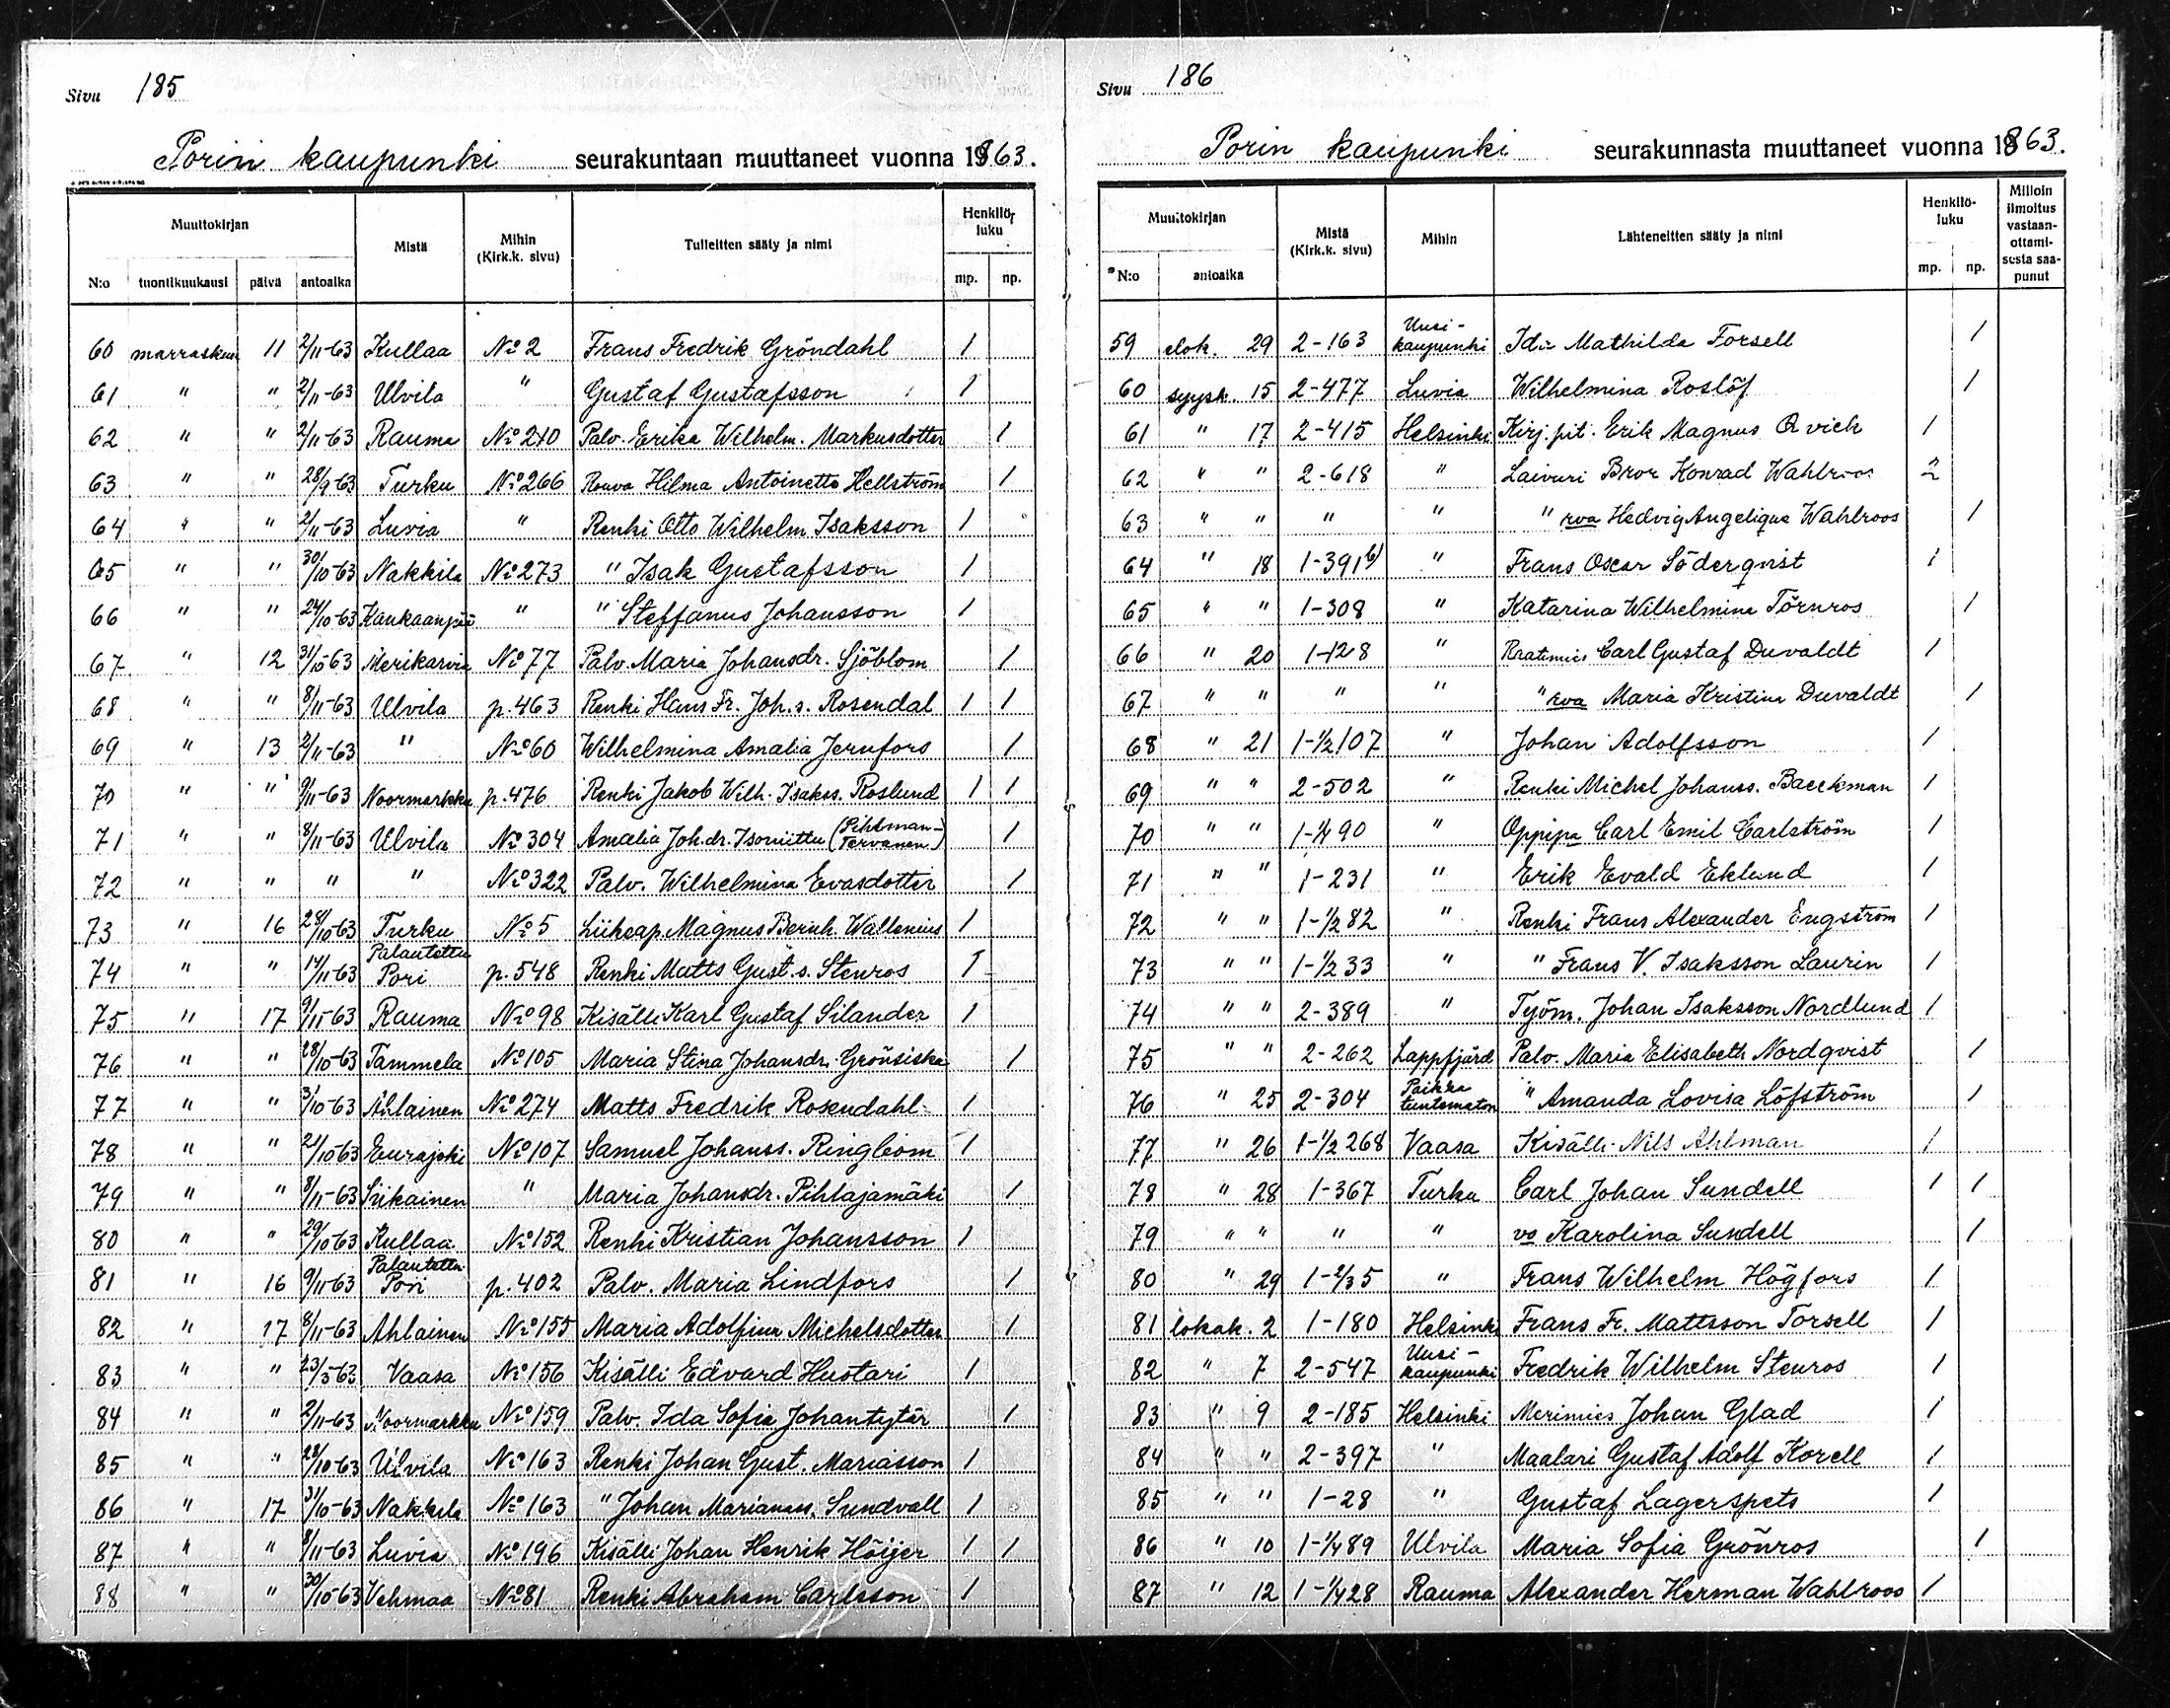 Sivu 185
Porin kaupunki seurakuntaan muuttaneet vuonna 1863.
Muuttokirjan Mistä Mihin (Kirk.k. sivu) Tulleitten sääty ja nimi Henkilö-luku
N:o tuontikuukausi päivä antoaika mp. np.
60 marraskuu 11 2/11-63 Kullaa No 2 Frans Fredrik Gröndahl 1
61 " " 2/11-63 Ulvila " Gustaf Gustafsson 1
62 " " 2/11-63 Rauma No 210 Palv. Erika Wilhelm. Markusdotter 1
63 " " 28/9-63 Turku No 266 Rouva Hilma Antoinette Hellström 1
64 " " 2/11-63 Luvia " Renki Otto Wilhelm Isaksson 1
65 " " 30/10-63 Nakkila No 273 " Isak Gustafsson 1
66 " " 24/10-63 Kankaanpää " " Steffanus Johansson 1
67 " 12 31/10-63 Merikarvia No 77 Palv. Maria Johansdr. Sjöblom 1
68 " " 8/11-63 Ulvila p. 463 Renki Hans Fr. Joh.s. Rosendal 1 1
69 " 13 2/11-63 " No 60 Wilhelmina Amalia Jernfors 1
70 " " 9/11-63 Noormarkku p. 476 Renki Jakob Wilh. Isakss. Roslund 1 1
71 " " 8/11-63 Ulvila No 304 Amalia Joh.dr. Isoniittu (Pihlman-Tervanen) 1
72 " " " " No 322 Palv. Wilhelmina Evasdotter 1
73 " 16 28/10-63 Turku No 5 Liikeap. Magnus Bernh. Wallenius 1
74 " " 14/11-63 Palautettu Pori p. 548 Renki Matts Gust.s. Stenros 1
75 " 17 9/11-63 Rauma No 98 Kisälli Karl Gustaf Silander 1
76 " " 28/10-63 Tammela No 105 Maria Stina Johansdr. Grönsiska 1
77 " " 3/10-63 Ahlainen No 274 Matts Fredrik Rosendahl 1
78 " " 21/10-63 Eurajoki No 107 Samuel Johanss. Ringbom 1
79 " " 8/11-63 Siikainen " Maria Johansdr. Pihlajamäki 1
80 " " 29/10-63 Kullaa No 152 Renki Kristian Johansson 1
81 " 16 9/11-63 Palautettu Pori p. 402 Palv. Maria Lindfors 1
82 " 17 8/11-63 Ahlainen No 155 Maria Adolfina Michelsdotter 1
83 " " 23/3-63 Vaasa No 156 Kisälli Edvard Huotari 1
84 " " 2/11-63 Noormarkku No 159 Palv. Ida Sofia Johantytär 1
85 " " 28/10-63 Ulvila No 163 Renki Johan Gust. Mariasson 1
86 " 17 31/10-63 Nakkila No 163 " Johan Marianss. Sundvall 1
87 " " 8/11-63 Luvia No 196 Kisälli Johan Henrik Höijer 1 1
88 " " 30/10-63 Vehmaa No 81 Renki Abraham Carlsson 1
Sivu 186
Porin kaupunki seurakunnasta muuttaneet vuonna 1863.
Muuttokirjan Mistä (Kirk.k. sivu) Mihin Lähteneitten sääty ja nimi Henkilö-luku Milloin ilmoitus vastaan-ottami-sesta saa-punut
N:o antoaika mp. np.
59 elok. 29 2-163 Uusi-kaupunki Ida Mathilda Forsell 1
60 syysk. 15 2-477 Luvia Wilhelmina Roslöf 1
61 " 17 2-415 Helsinki Kirj.pit. Erik Magnus Qvick 1
62 " " 2-618 " Laivuri Bror Konrad Wahlroos 2
63 " " " " " rva Hedvig Angelique Wahlroos 1
64 " 18 1-391 b) " Frans Oscar Söderqvist 1
65 " " 1-308 " Katarina Wilhelmina Törnros 1
66 " 20 1-128 " Raatimies Carl Gustaf Duvaldt 1
67 " " " " " rva Maria Kristina Duvaldt 1
68 " 21 1-1/2 107 " Johan Adolfsson 1
69 " " 2-502 " Renki Michel Johanss. Baeckman 1
70 " " 1-1/4 90 " Oppipa Carl Emil Carlström 1
71 " " 1-231 " Erik Evald Eklund 1
72 " " 1-1/2 82 " Renki Frans Alexander Engström 1
73 " " 1-1/2 33 " " Frans V. Isaksson Laurin 1
74 " " 2-389 " Työm. Johan Isaksson Nordlund 1
75 " " 2-262 Lappfjärd Palv. Maria Elisabeth Nordqvist 1
76 " 25 2-304 Paikka tuntematon " Amanda Lovisa Löfström 1
77 " 26 1-1/2 268 Vaasa Kisälli Nils Ahlman 1
78 " 28 1-367 Turku Carl Johan Sundell 1 1
79 " " " " vo Karolina Sundell 1
80 " 29 1-2/3 5 " Frans Wilhelm Högfors 1
81 lokak. 2 1-180 Helsinki Frans Fr. Mattsson Torsell 1
82 " 7 2-547 Uusi-kaupunki Fredrik Wilhelm Stenros 1
83 " 9 2-185 Helsinki Merimies Johan Glad 1
84 " " 2-397 " Maalari Gustaf Adolf Korell 1
85 " " 1-28 " Gustaf Lagerspets 1
86 " 10 1-1/4 89 Ulvila Maria Sofia Grönros 1
87 " 12 1-1/4 28 Rauma Alexander Herman Wahlroos 1